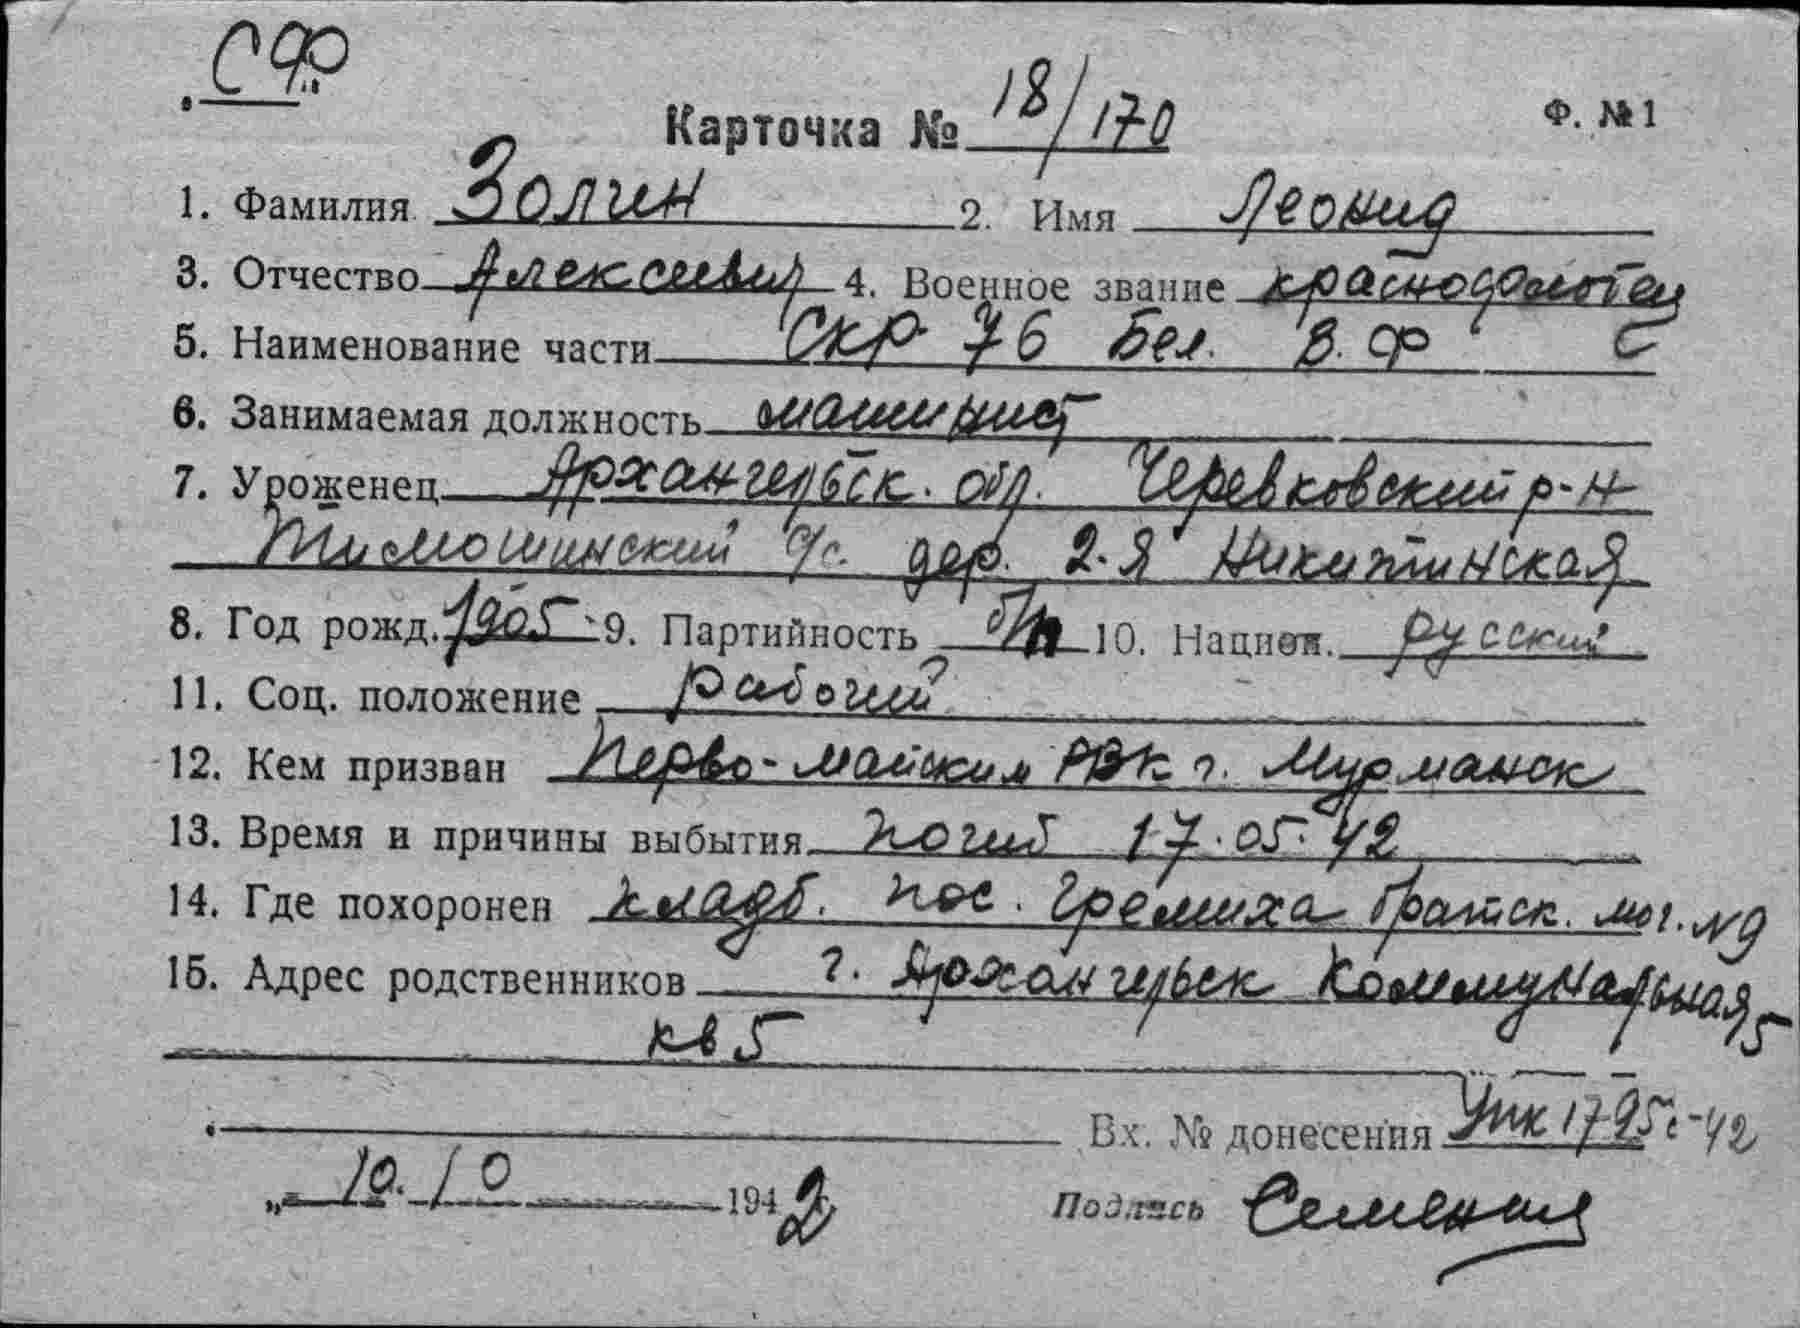 СФ
Карточка № 18/170 Ф. № 1
1. Фамилия Золин 2. Имя Леонид
3. Отчество Алексеевич 4. Военное звание краснофлотец
5. Наименование части СКР 76 Бел. В. Ф С
6. Занимаемая должность машинист
7. Уроженец Архангельск. обл. Черевковский р-н
Тимошинский с/с. дер. 2-я Никитинская
8. Год рожд. 1905 9. Партийность б/п 10. Национ. русский
11. Соц. положение рабочий
12. Кем призван Перво-майским РВК г. Мурманск
13. Время и причины выбытия погиб 17.05.42
14. Где похоронен кладб. пос. Гремиха братск. мог. №9
15. Адрес родственников г. Архангельск Коммунальная 5
кв 5
Вх. № донесения 1795с-42
„ 10.10 1942 Подпись